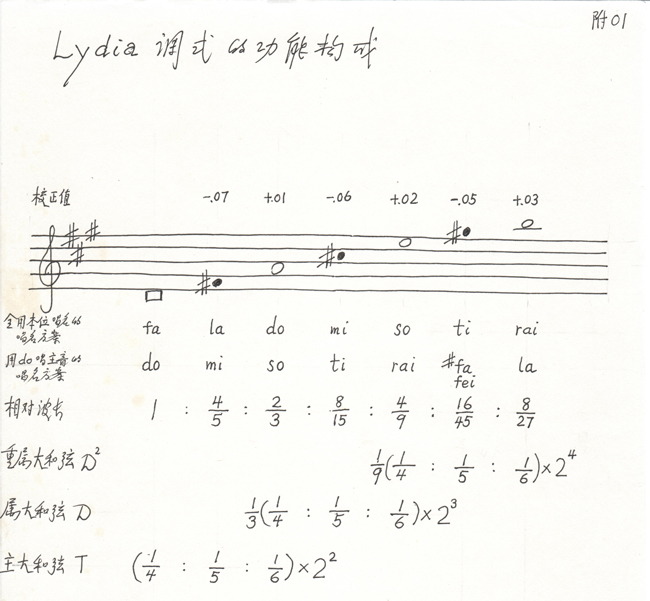 附01
Lydia 调式的功能构成
校正值 -.07 +.01 -.06 +.02 -.05 +.03
全用本位唱名的
唱名方案 fa la do mi so ti rai
用do唱主音的
唱名方案 do mi so ti rai #fa la
fei
相对波长 1 : 4/5 : 2/3 : 8/15 : 4/9 : 16/45 : 8/27
重属大和弦 D² 1/9(1/4 : 1/5 : 1/6)×2⁴
属大和弦 D 1/3(1/4 : 1/5 : 1/6)×2³
主大和弦 T (1/4 : 1/5 : 1/6)×2²